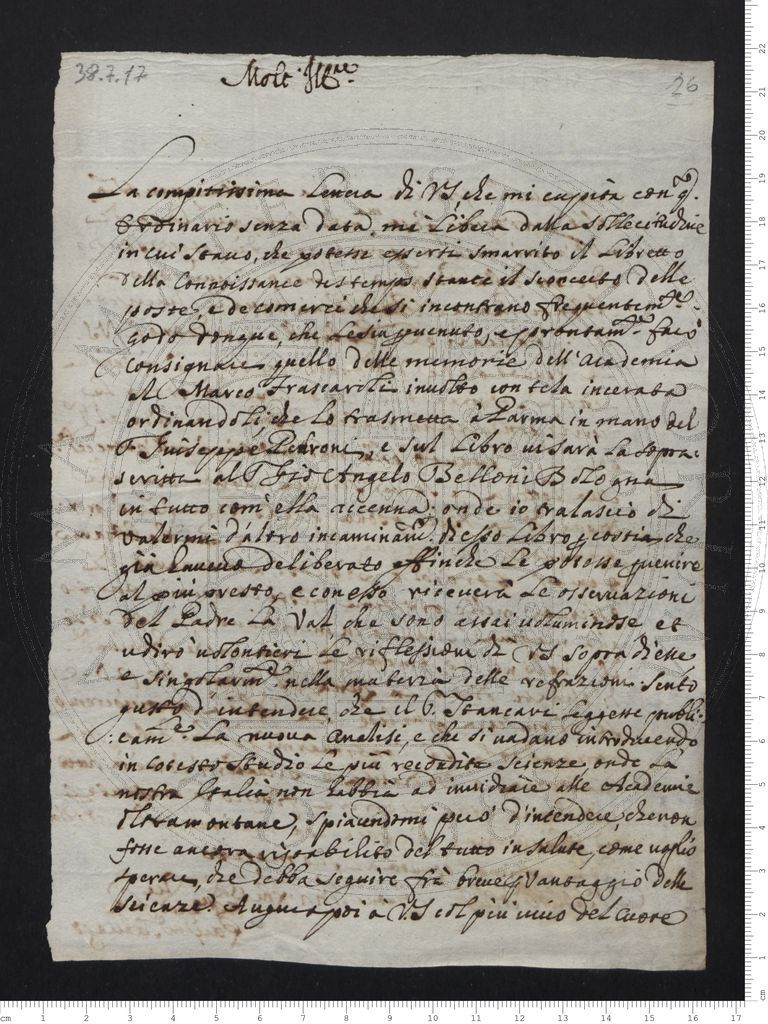 38.7.17
26
Molt' Ill.re
La compitissima lettera di VS, che mi capita con q.o
Ordinario senza data, mi libera dalla sollecitudine
in cui stavo, che potesse essersi smarrito il libretto
della Connoissance des temps stante il sconcerto delle
poste, e de comerci che si incontrano frequentem.te
Godo dunque, che le sia pervenuto, e prontam.te faccio
consignare quello delle memorie dell'Academia
al Marco Frascaroli involto con tela incerata
ordinandoli che lo trasmetta à Parma in mano del
Giuseppe Pedroni, e sul Libro vi sarà la sopra:
scritta al Gio Angelo Belloni Bologna
in tutto com'ella accenna: onde io tralascio di
valermi d'altro incaminam.to di esso libro costia, che
già havevo deliberato affinche le potesse pervenire
al più presto, e con esso riceverà le osservazioni
del Padre La Val che sono assai voluminose et
udirò volontieri le riflessioni di VS sopra di esse
e singolarm.te nella materia delle refrazioni. Sento
gusto d'intendere, che il Stancari leggesse publi:
:cam.te la nuova Analisi, e che si vadano introducendo
in cotesto Studio le più recondite scienze onde la
nostra Italia non habbia ad invidiare alle Academie
oltramontane, spiacendomi però d'intendere, che non
fosse ancora ristabilito del tutto in salute, come voglio
sperare, che debba seguire frà breve p vantaggio delle
scienze. Auguro poi à VS col più vivo del cuore